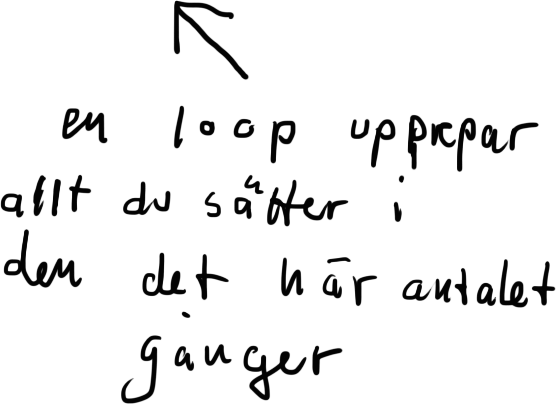 en loop upprepar
allt du sätter i
den det här antalet
gånger